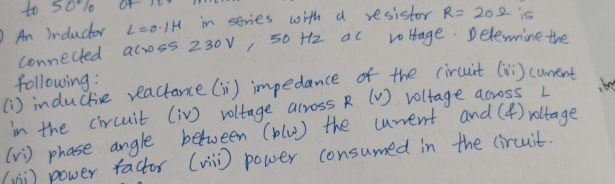 to 50%
An Inductor L=0.1H in series with a resistor R= 20Ω is
connected across 230V, 50 Hz ac voltage. Determine the
following:
(i) inductive reactance (ii) impedance of the circuit (iii) current
in the circuit (iv) voltage across R (v) voltage across L
(vi) phase angle between (b/w) the current and (f) voltage
(vii) power factor (viii) power consumed in the circuit.